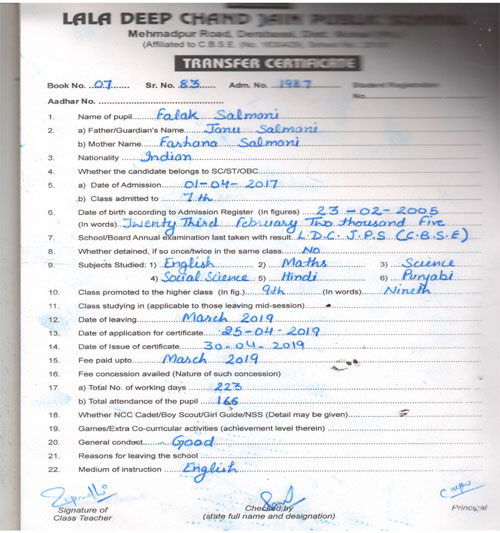 LALA DEEP CHAND JAIN PUBLIC SCHOOL
Mehmadpur Road,
(Affiliated to C.B.S.E.
TRANSFER CERTIFICATE
Book No. ..07..... Sr. No. .83....... Adm. No. ...1987.......... Student Registration No.
Aadhar No. ...............
1. Name of pupil Falak Salmani
2. a) Father/Guardian's Name Janu Salmani
b) Mother Name Farhana Salmani
3. Nationality Indian
4. Whether the candidate belongs to SC/ST/OBC
5. a) Date of Admission 01-04-2017
b) Class admitted to 7th
6. Date of birth according to Admission Register (In figures) 23-02-2005
(In words) Twenty Third February Two thousand Five
7. School/Board Annual examination last taken with result. L.D.C. J.P.S (C.B.S.E)
8. Whether detained, if so once/twice in the same class NO
9. Subjects Studied: 1) English 2) Maths 3) Science
4) Social Science 5) Hindi 6) Punjabi
10. Class promoted to the higher class (In fig.) 9th (In words) Nineth
11. Class studying in (applicable to those leaving mid-session)
12. Date of leaving March 2019
13. Date of application for certificate 25-04-2019
14. Date of Issue of certificate 30-04-2019
15. Fee paid upto March 2019
16. Fee concession availed (Nature of such concession)
17. a) Total No. of working days 223
b) Total attendance of the pupil 166
18. Whether NCC Cadet/Boy Scout/Girl Guide/NSS (Detail may be given)
19. Games/Extra Co-curricular activities (achievement level therein)
20. General conduct Good
21. Reasons for leaving the school
22. Medium of instruction English
Signature of Class Teacher
Checked by (state full name and designation)
Principal